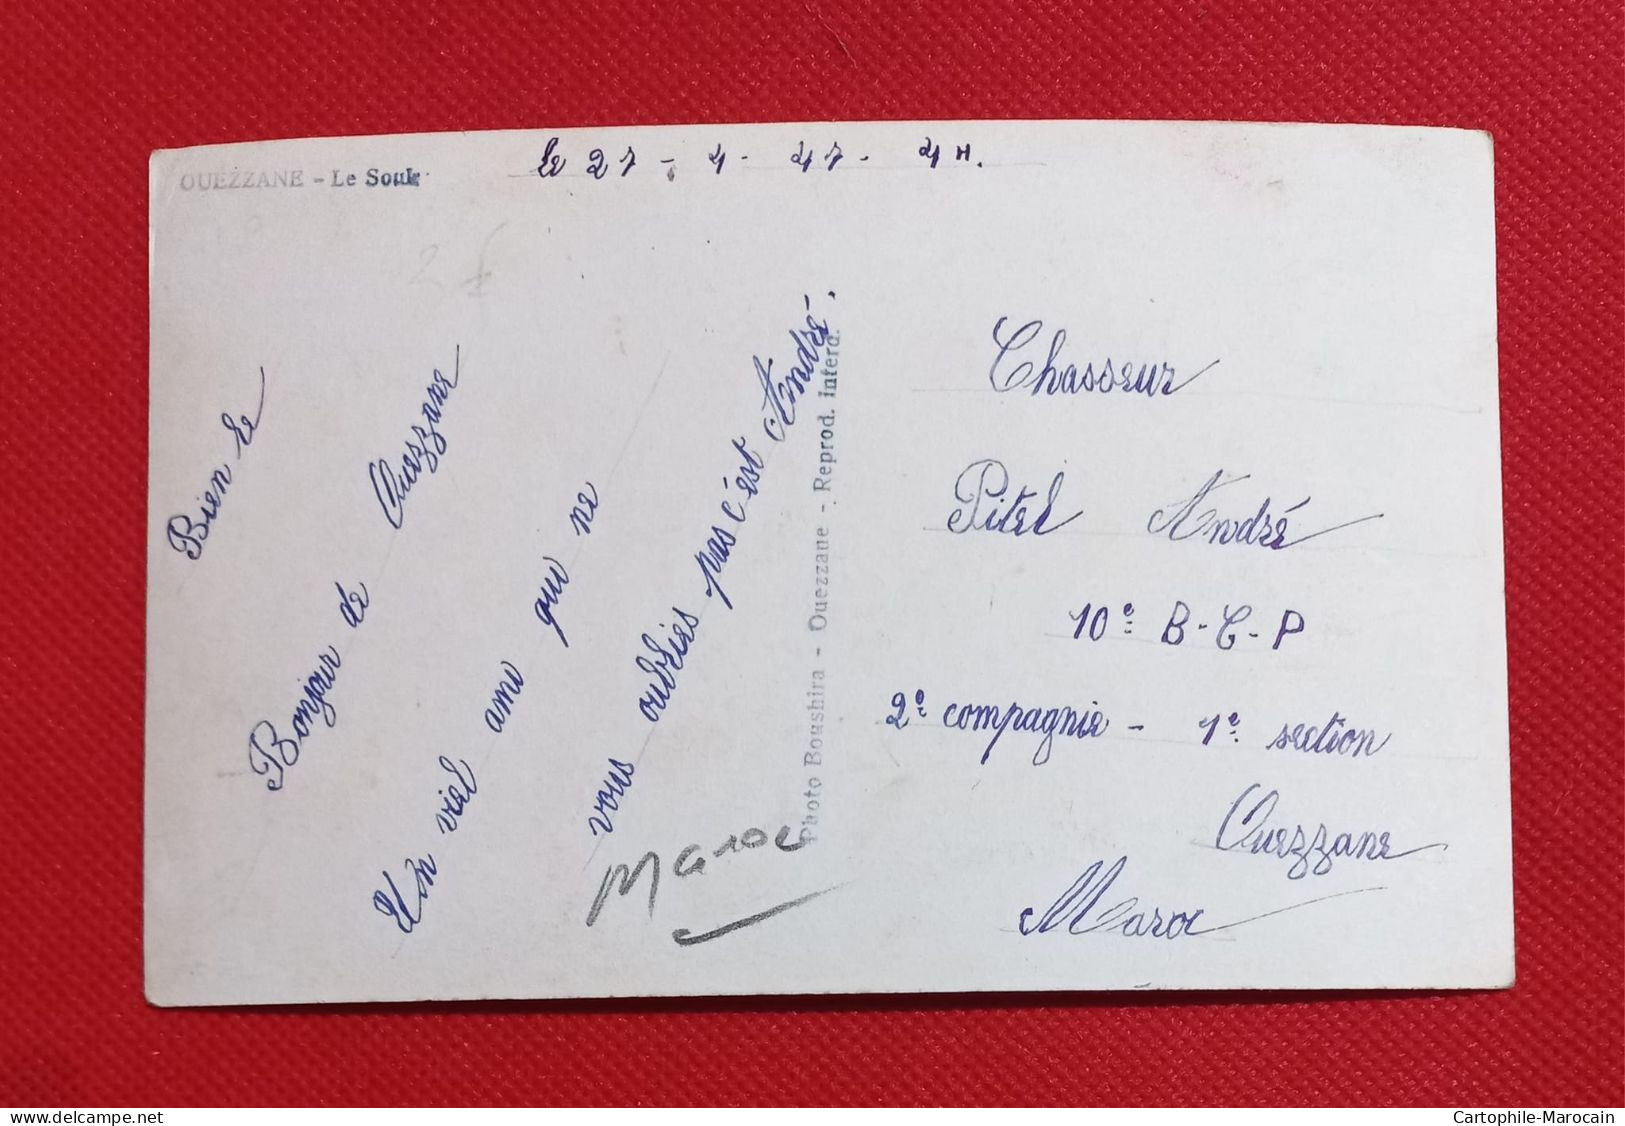 OUEZZANE - Le Souk
le 27 - 4 - 47 - 4H.
Bien le
Bonjour de Ouezzane
Un viel ami qui ne
vous oublies pas c'est André.
Maroc
Photo Boushira - Ouezzane - Reprod. Interd.
Chasseur
Pitel André
10e B-C-P
2e compagnie - 1e section
Ouezzane
Maroc
www.delcampe.net
Cartophile-Marocain